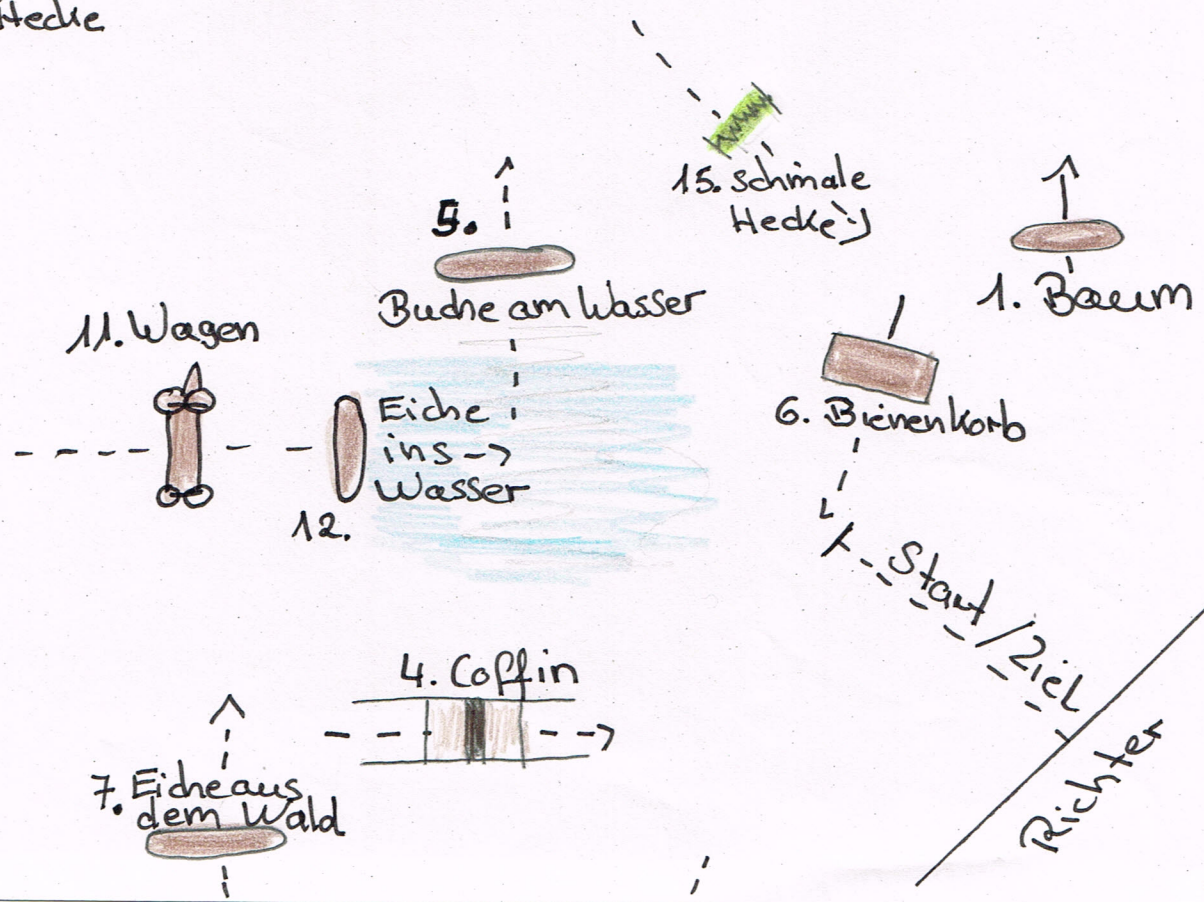 Hecke
15. schmale
Hecke :)
5.
Buche am Wasser
1. Baum
11. Wagen
Eiche
ins
Wasser
12.
6. Bienenkorb
Start/Ziel
4. Coffin
7. Eiche aus
dem Wald
Richter